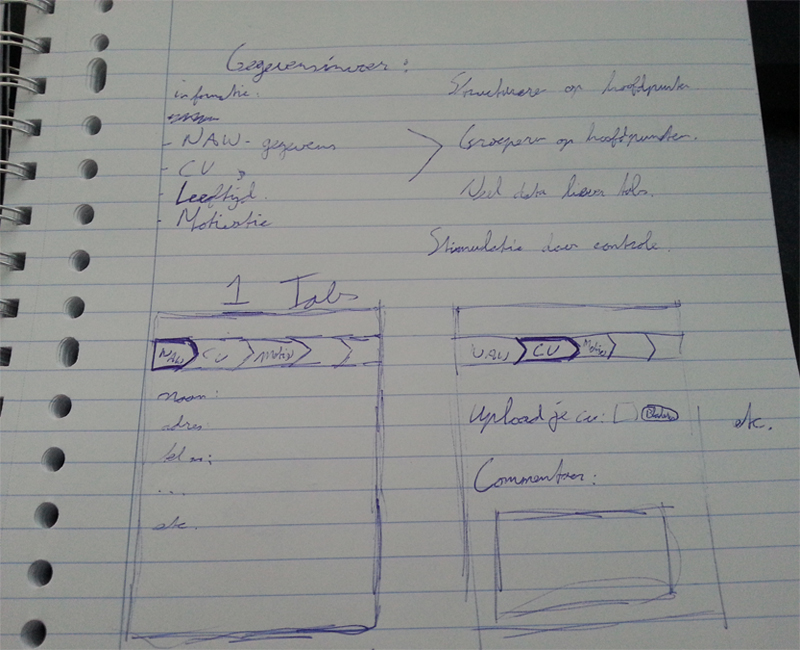 Gegevensinvoer:
informatie:
- NAW-gegevens
- CV
- Leeftijd.
- Motivatie
Structureren op hoofdpunten.
Groeperen op hoofdpunten.
Veel data liever tabs.
Stimulatie door controle.
1 Tabs
NAW CV Motiv
naam:
adres:
tel nr:
...
etc.
NAW CV Motiv
Upload je cv:
Commentaar:
etc.